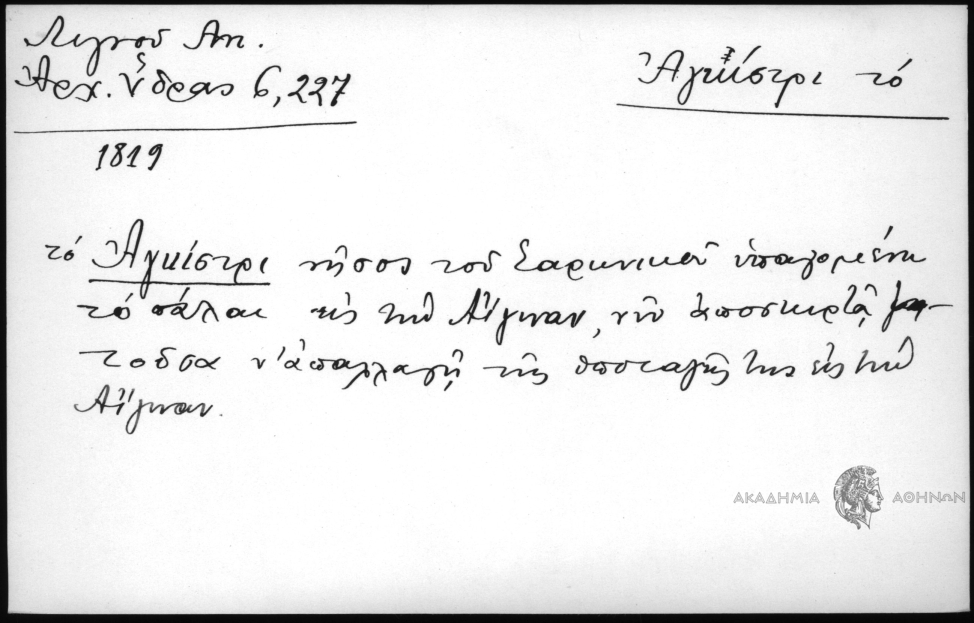 Λιγνοῦ Ἀντ.
Ἀρχ. Ὕδρας 6, 227
Ἀγκίστρι τό
1819
τό Ἀγκίστρι νῆσος τοῦ Σαρωνικοῦ ὑπαγομένη
τό πάλαι εἰς τήν Αἴγιναν, νῦν ἀποσκιρτᾷ, ζη-
τοῦσα ν' ἀπαλλαγῇ τῆς ὑποταγῆς της εἰς τήν
Αἴγιναν.
ΑΚΑΔΗΜΙΑ ΑΘΗΝΩΝ